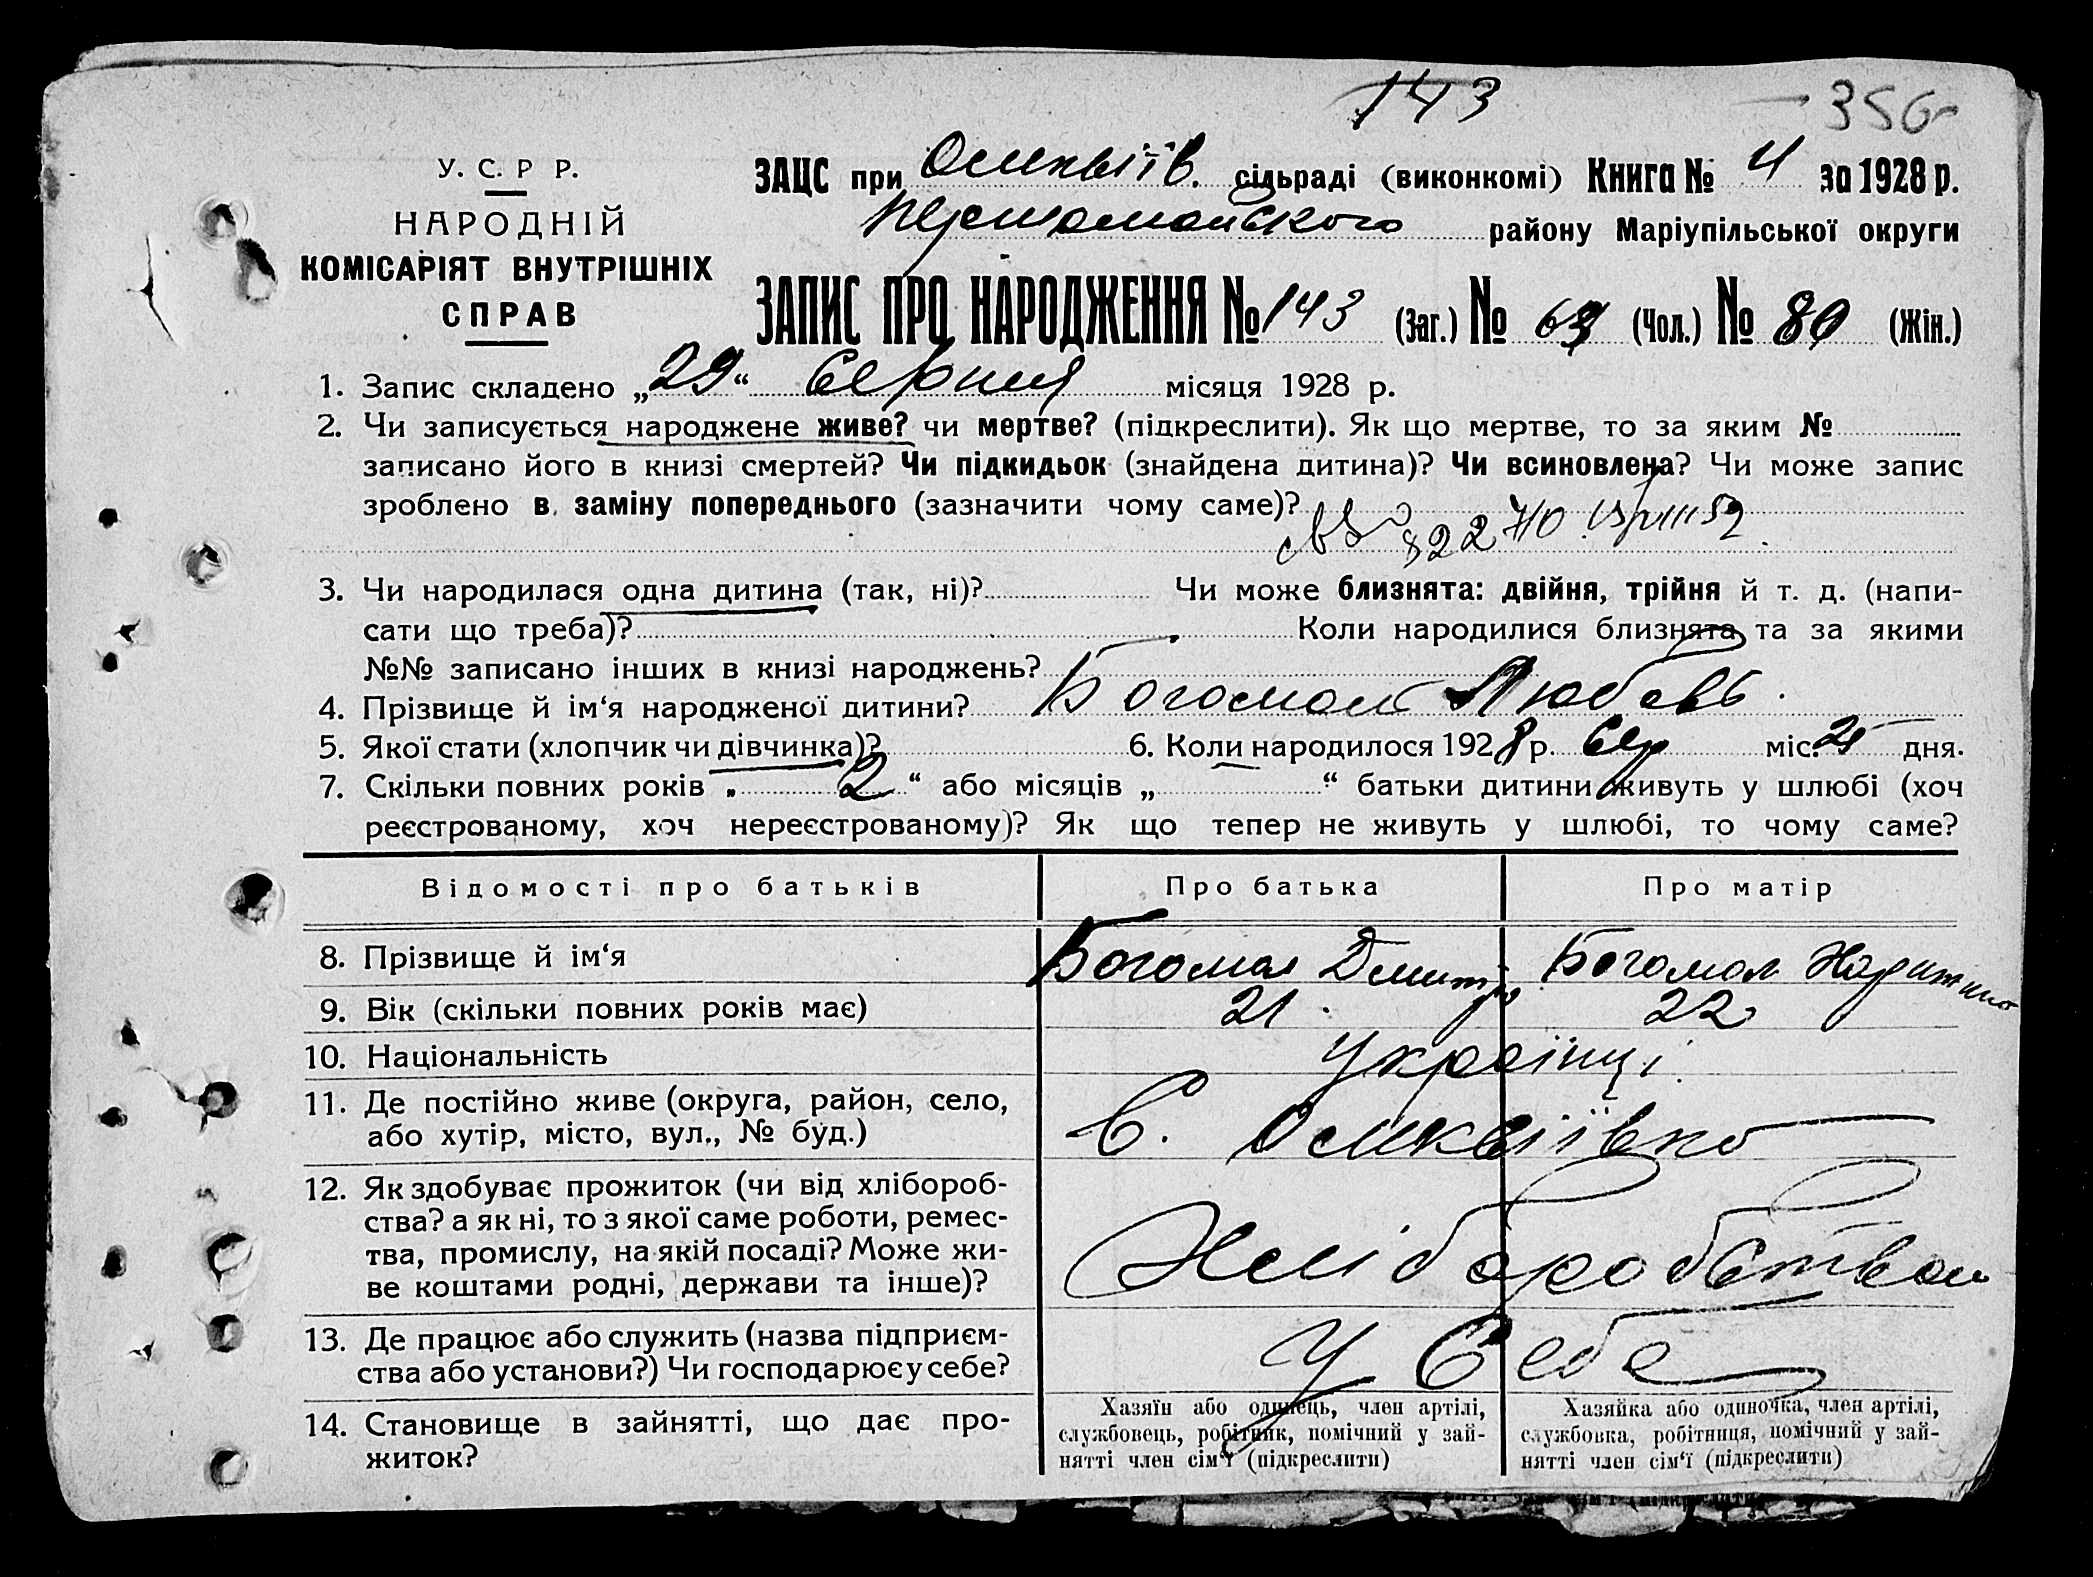 143
356
У. С. Р Р.
НАРОДНІЙ
КОМІСАРІЯТ ВНУТРІШНІХ
СПРАВ
ЗАЦС при сільраді (виконкомі) Книга № 4 за 1928 р.
Першомайського району Маріупільської округи
ЗАПИС ПРО НАРОДЖЕННЯ № 143 (Заг.) № 63 (Чол.) № 80 (Жін.)
1. Запис складено „29“ Серпня місяця 1928 р.
2. Чи записується народжене живе? чи мертве? (підкреслити). Як що мертве, то за яким №
записано його в книзі смертей? Чи підкидьок (знайдена дитина)? Чи всиновлена? Чи може запис
зроблено в заміну попереднього (зазначити чому саме)?
3. Чи народилася одна дитина (так, ні)? Чи може близнята: двійня, трійня й т. д. (напи-
сати що треба)? Коли народилися близнята та за якими
№№ записано інших в книзі народжень?
4. Прізвище й ім‘я народженої дитини? Богомол Любовь.
5. Якої стати (хлопчик чи дівчинка)? 6. Коли народилося 1928 р. Сер міс. 25 дня.
7. Скільки повних років „ 2 “ або місяців „ “ батьки дитини живуть у шлюбі (хоч
реєстрованому, хоч нереєстрованому)? Як що тепер не живуть у шлюбі, то чому саме?
Відомості про батьків Про батька Про матір
8. Прізвище й ім‘я Богомол Дмитро Богомол
9. Вік (скільки повних років має) 21. 22
10. Національність українці
11. Де постійно живе (округа, район, село,
або хутір, місто, вул., № буд.) С.
12. Як здобуває прожиток (чи від хлібороб-
ства? а як ні, то з якої саме роботи, ремес-
тва, промислу, на якій посаді? Може жи-
ве коштами родні, держави та інше)? Хліборобством
13. Де працює або служить (назва підприєм-
ства або установи?) Чи господарює у себе? У Себе
14. Становище в зайнятті, що дає про-
житок?
Хазяїн або одинець, член артілі,
службовець, робітник, помічний у зай-
нятті член сім‘ї (підкреслити)
Хазяйка або одиночка, член артілі,
службовка, робітниця, помічний у зай-
нятті член сім‘ї (підкреслити)